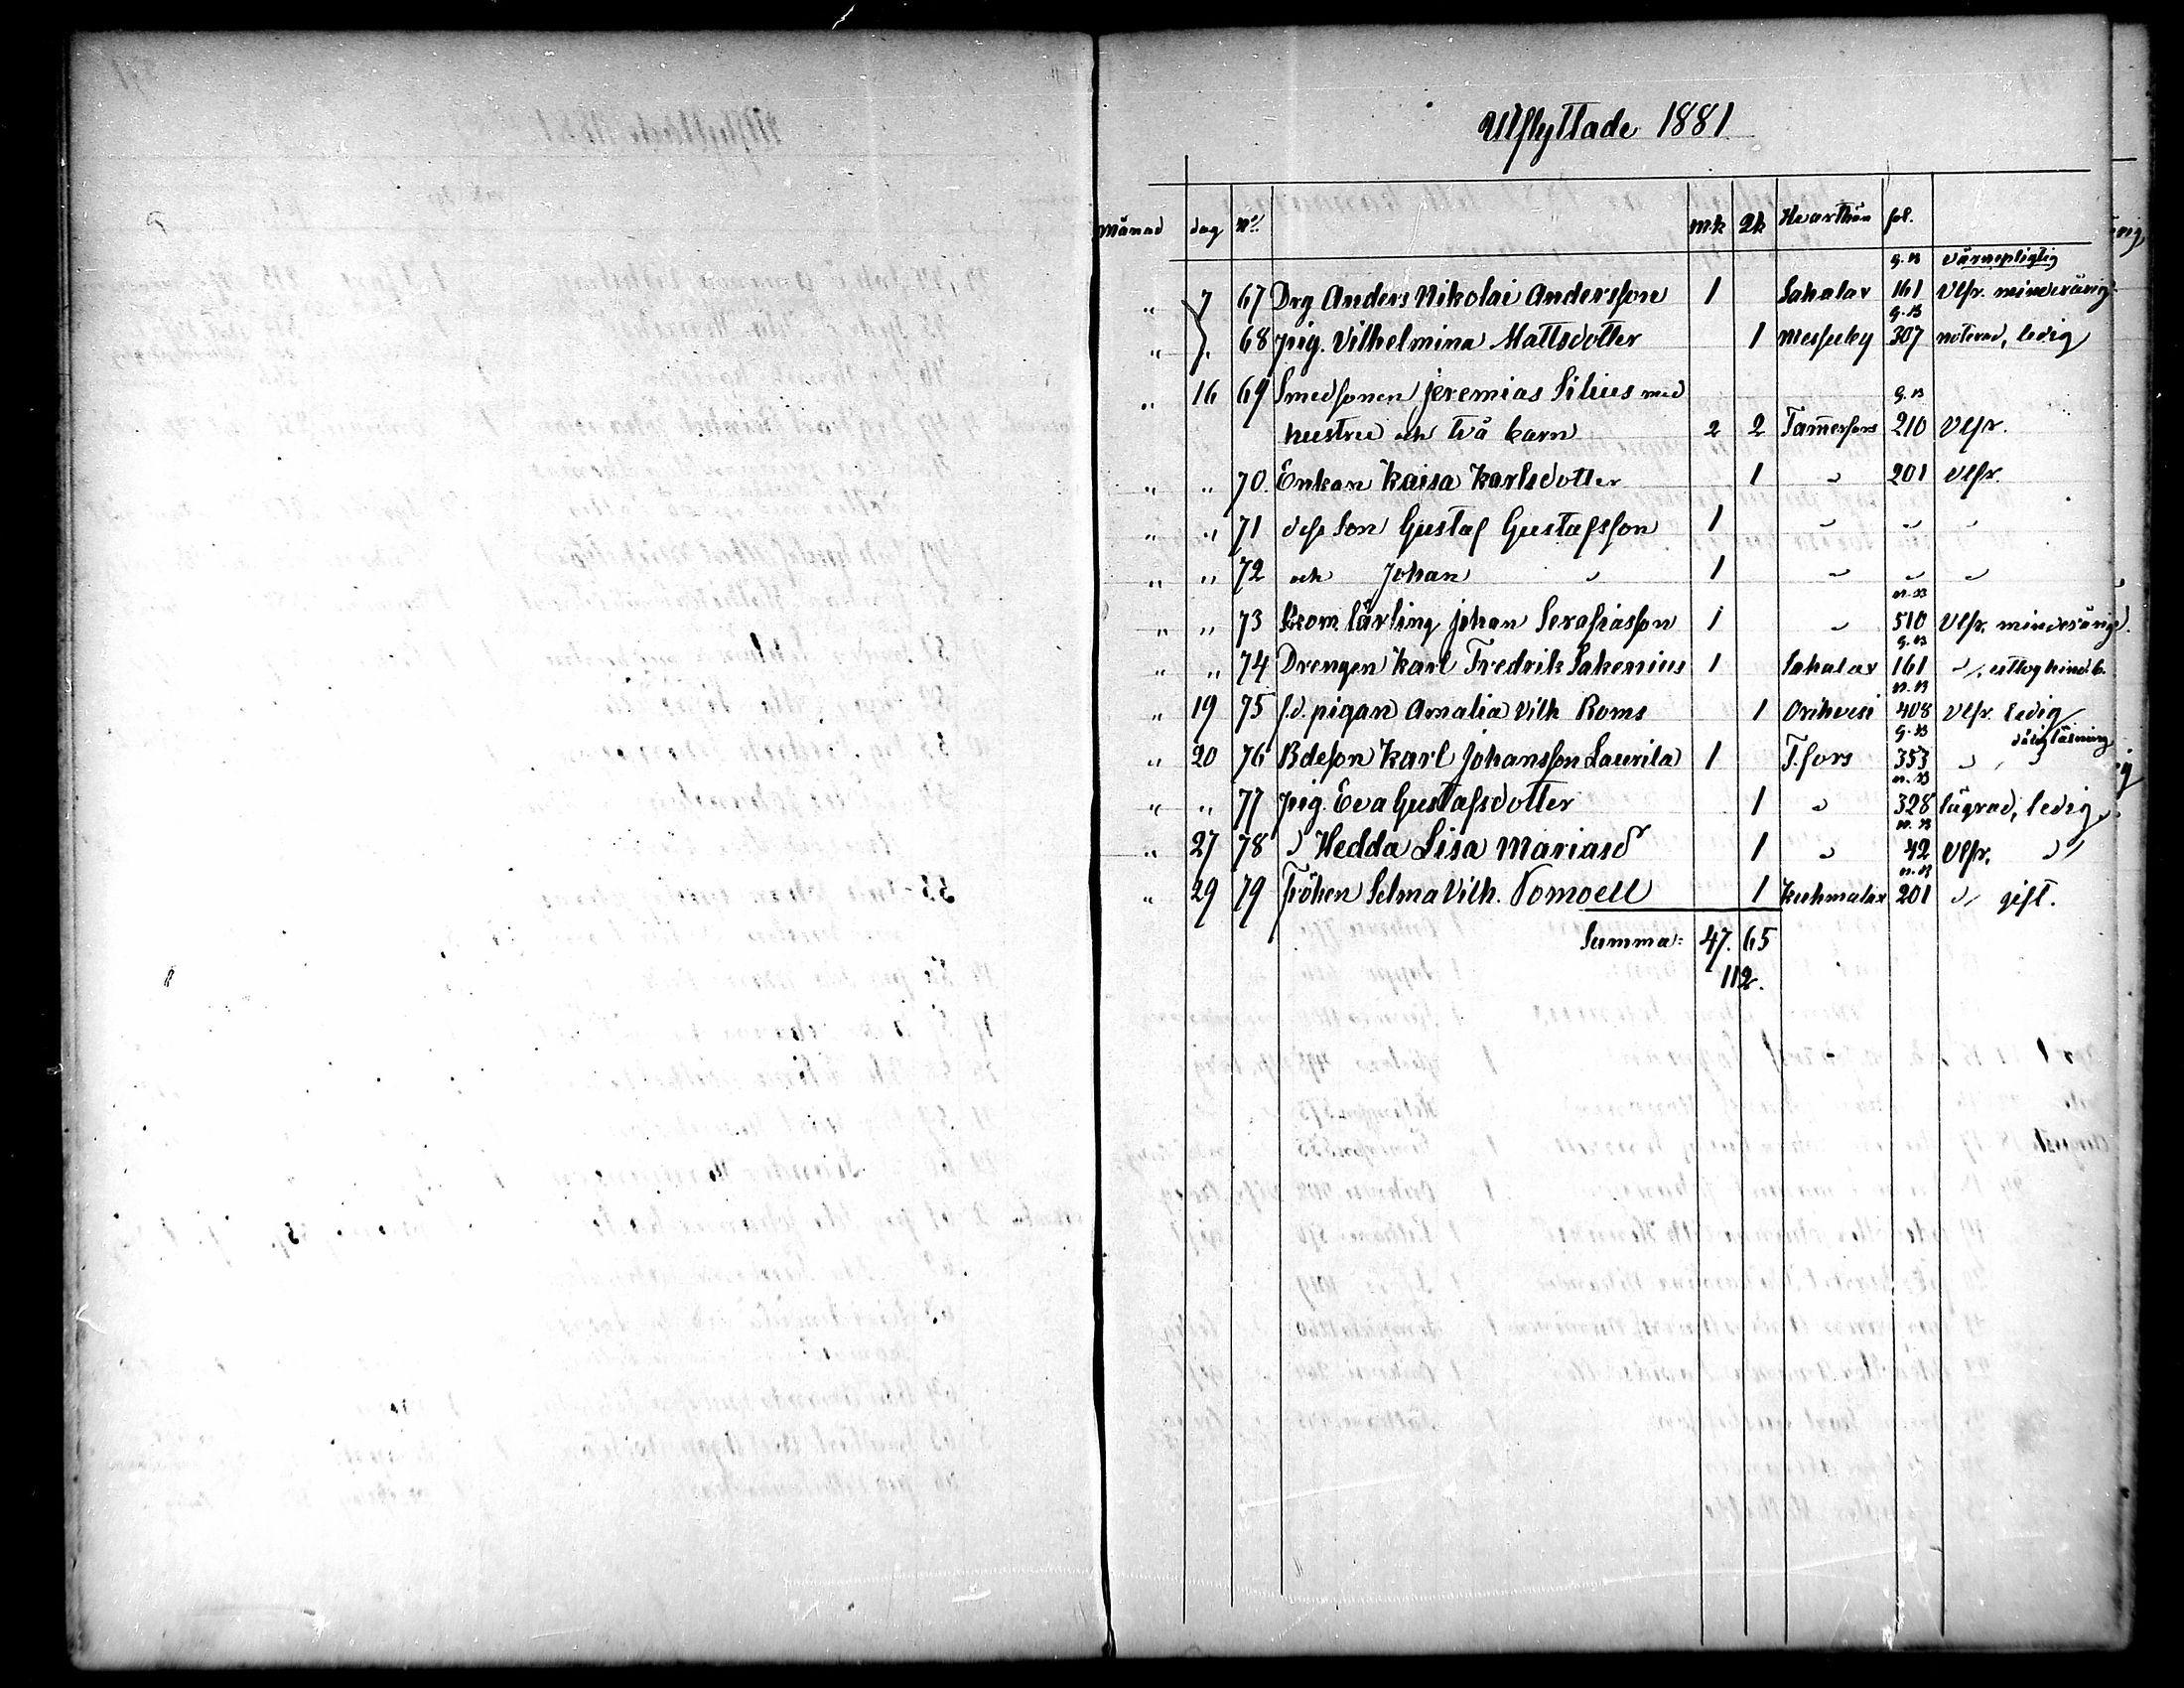 Utflyttade 1881
månad dag No. mk qk Hvarthän fol.
g. B värnepligtig
" 7 67 Drg Anders Nikolai Andersson 1 Sahalax 161 Vlfr. minderårig
g. B
" " 68 pig. Vilhelmina Mattsdotter 1 Messuby 307 noterad, ledig
" 16 69 Smedsonen Jeremias Silius med g. B
hustru och två barn 2 2 Tam̅erfors 210 Vlfr.
" " 70. Enkan Kaisa Karlsdotter 1 " 201 Vlfr.
" " 71 dess son Gustaf Gustafsson 1 " " "
" " 72 och Johan " 1 " " "
n. B
" " 73 lärling Johan Serafiasson 1 " 510 Vlfr. minderårig.
g. B
" " 74 Drengen Karl Fredrik Sakenius 1 Sahalax 161 "
n. B
" 19 75 f.d. pigan Amalia Vilh Roms 1 Orihvesi 408 Vlfr. ledig
g. B dålig läsning
" 20 76 Bdeson Karl Johansson Laurila 1 T.fors 353 " "
n. B
" " 77 pig. Eva Gustafsdotter 1 " 328 lagvad, ledig
n. B
" 27 78 " Hedda Lisa Mariasd 1 " 42 Vlfr. "
n. B
" 29 79 Fröken Selma Vilh. Nomoell 1 Kuhmalax 201 " gift.
Summa: 47. 65
112.